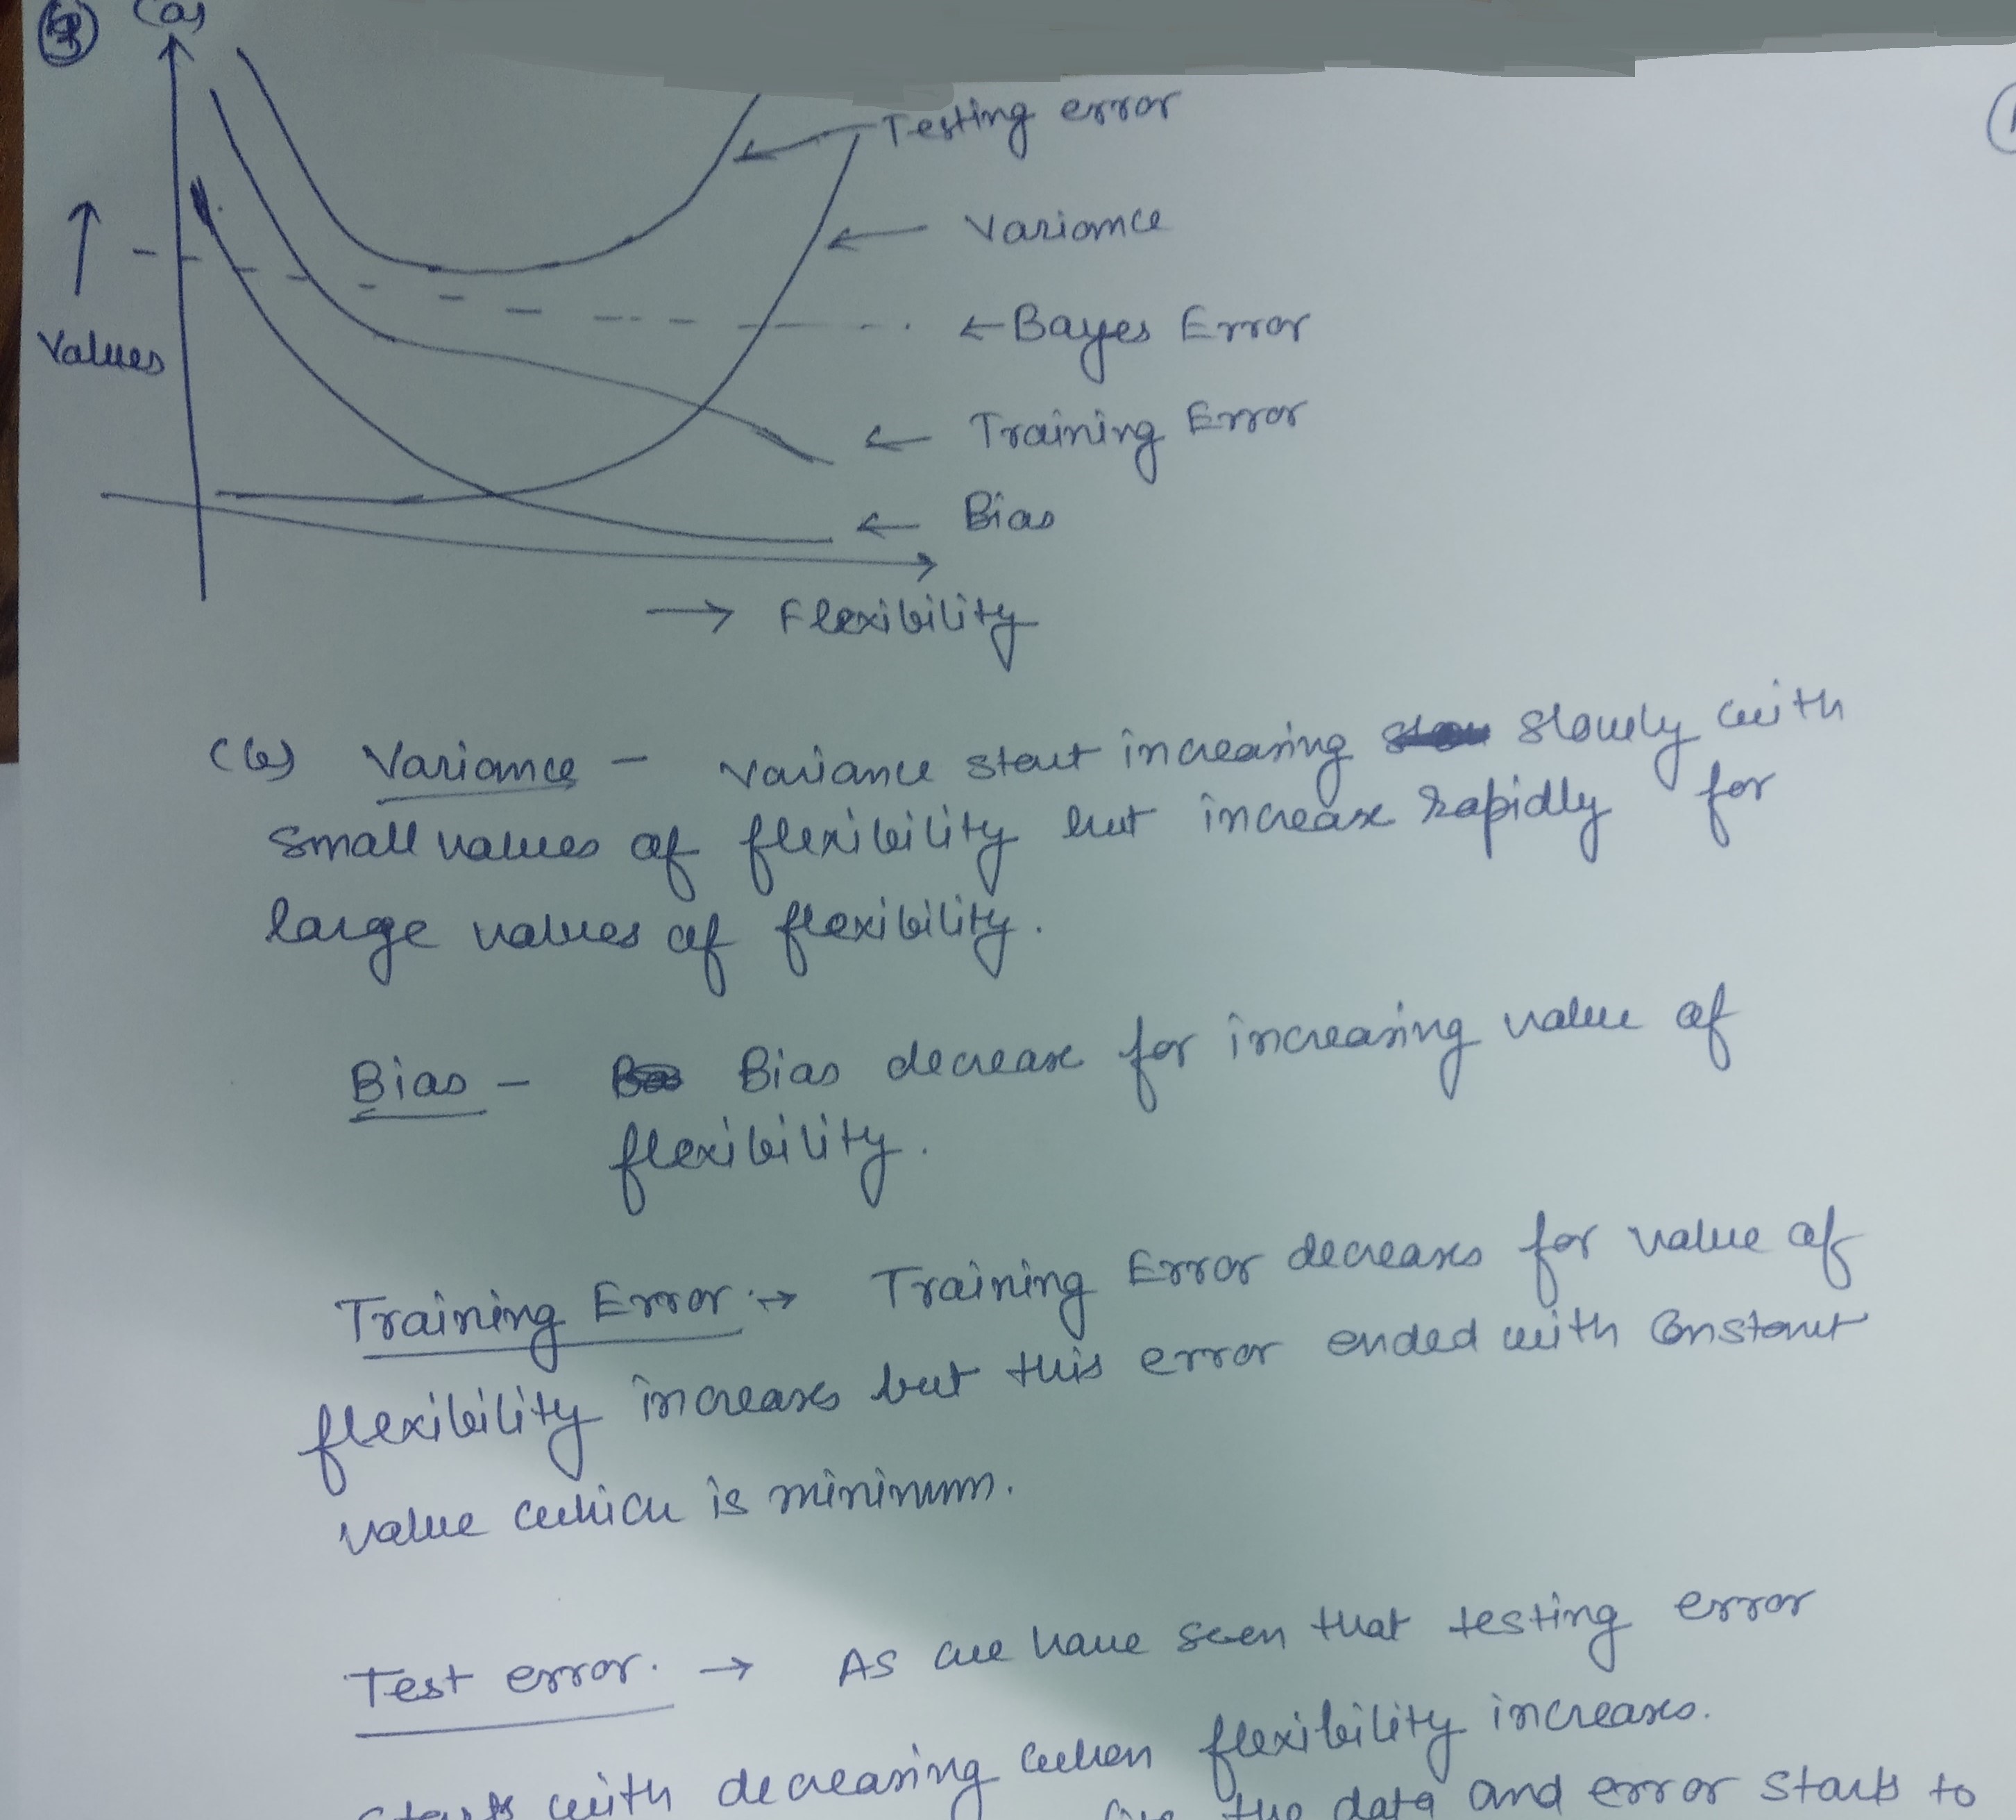 (a)
Testing error
Variance
Values
Bayes Error
Training Error
Bias
Flexibility
(b) Variance - Variance start increasing slowly with
small values of flexibility but increase rapidly for
large values of flexibility.
Bias - Bias decrease for increasing value of
flexibility.
Training Error → Training Error decreases for value of
flexibility increases but this error ended with constant
value which is minimum.
Test error. → As we have seen that testing error
starts with decreasing when flexibility increases.
the data and error starts to